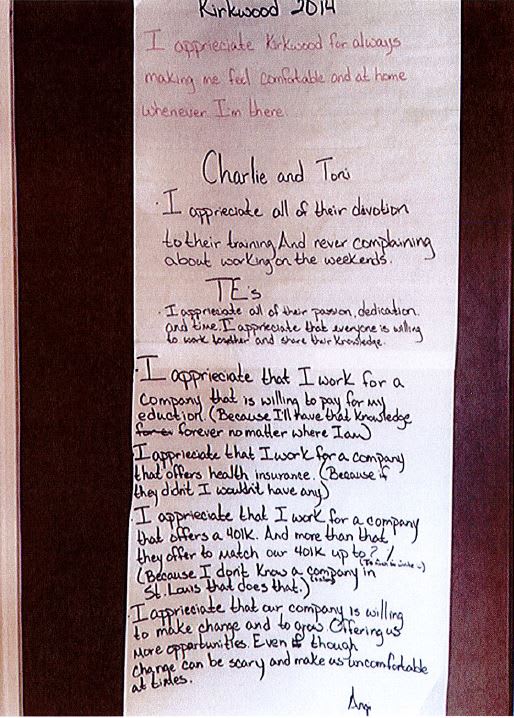 Kirkwood 2014
I apprieciate Kirkwood for always
making me feel comfortable and at home
whenever I'm there.
Charlie and Toni
· I appreciate all of their devotion
to their training And never complaining
about working on the weekends.
TE's
· I appreciate all of their passion, dedication
and time. I appreciate that everyone is willing
to work together and share their knowledge.
· I apprieciate that I work for a
company that is willing to pay for my
eduction. (Because I'll have that knowledge
forever no matter where I am)
I appreciate that I work for a company
that offers health insurance. (Because if
they didn't I wouldn't have any)
· I apprieciate that I work for a company
that offers a 401K. And more than that
they offer to match our 401K up to ? %
(Because I don't know a company in
St. Louis that does that.)
· I appreciate that our company is willing
to make change and to grow Offering us
more opportunities. Even if though
change can be scary and make us uncomfortable
at times.